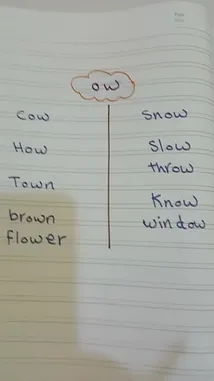 ow
Cow
How
Town
brown
flower
Snow
Slow
throw
Know
window